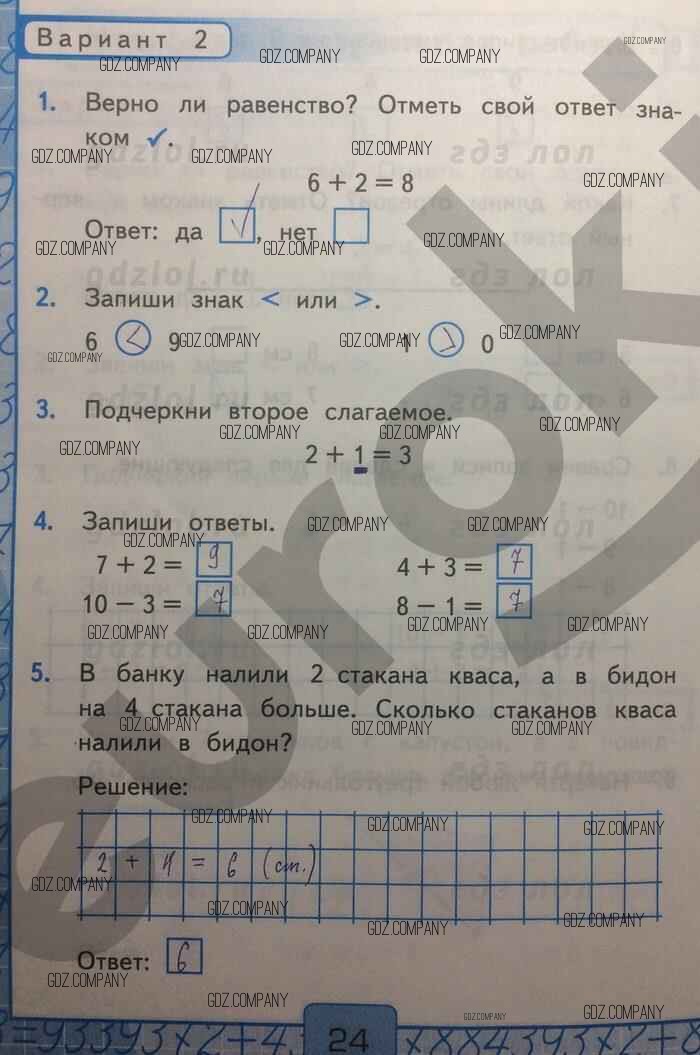 Вариант 2
1. Верно ли равенство? Отметь свой ответ зна-
ком ✓.
6 + 2 = 8
Ответ: да ✓, нет
2. Запиши знак < или >.
6 < 9 1 > 0
3. Подчеркни второе слагаемое.
2 + 1 = 3
4. Запиши ответы.
7 + 2 = 9 4 + 3 = 7
10 − 3 = 7 8 − 1 = 7
5. В банку налили 2 стакана кваса, а в бидон
на 4 стакана больше. Сколько стаканов кваса
налили в бидон?
Решение:
2 + 4 = 6 (ст.)
Ответ: 6
24
GDZ.COMPANY
euroki